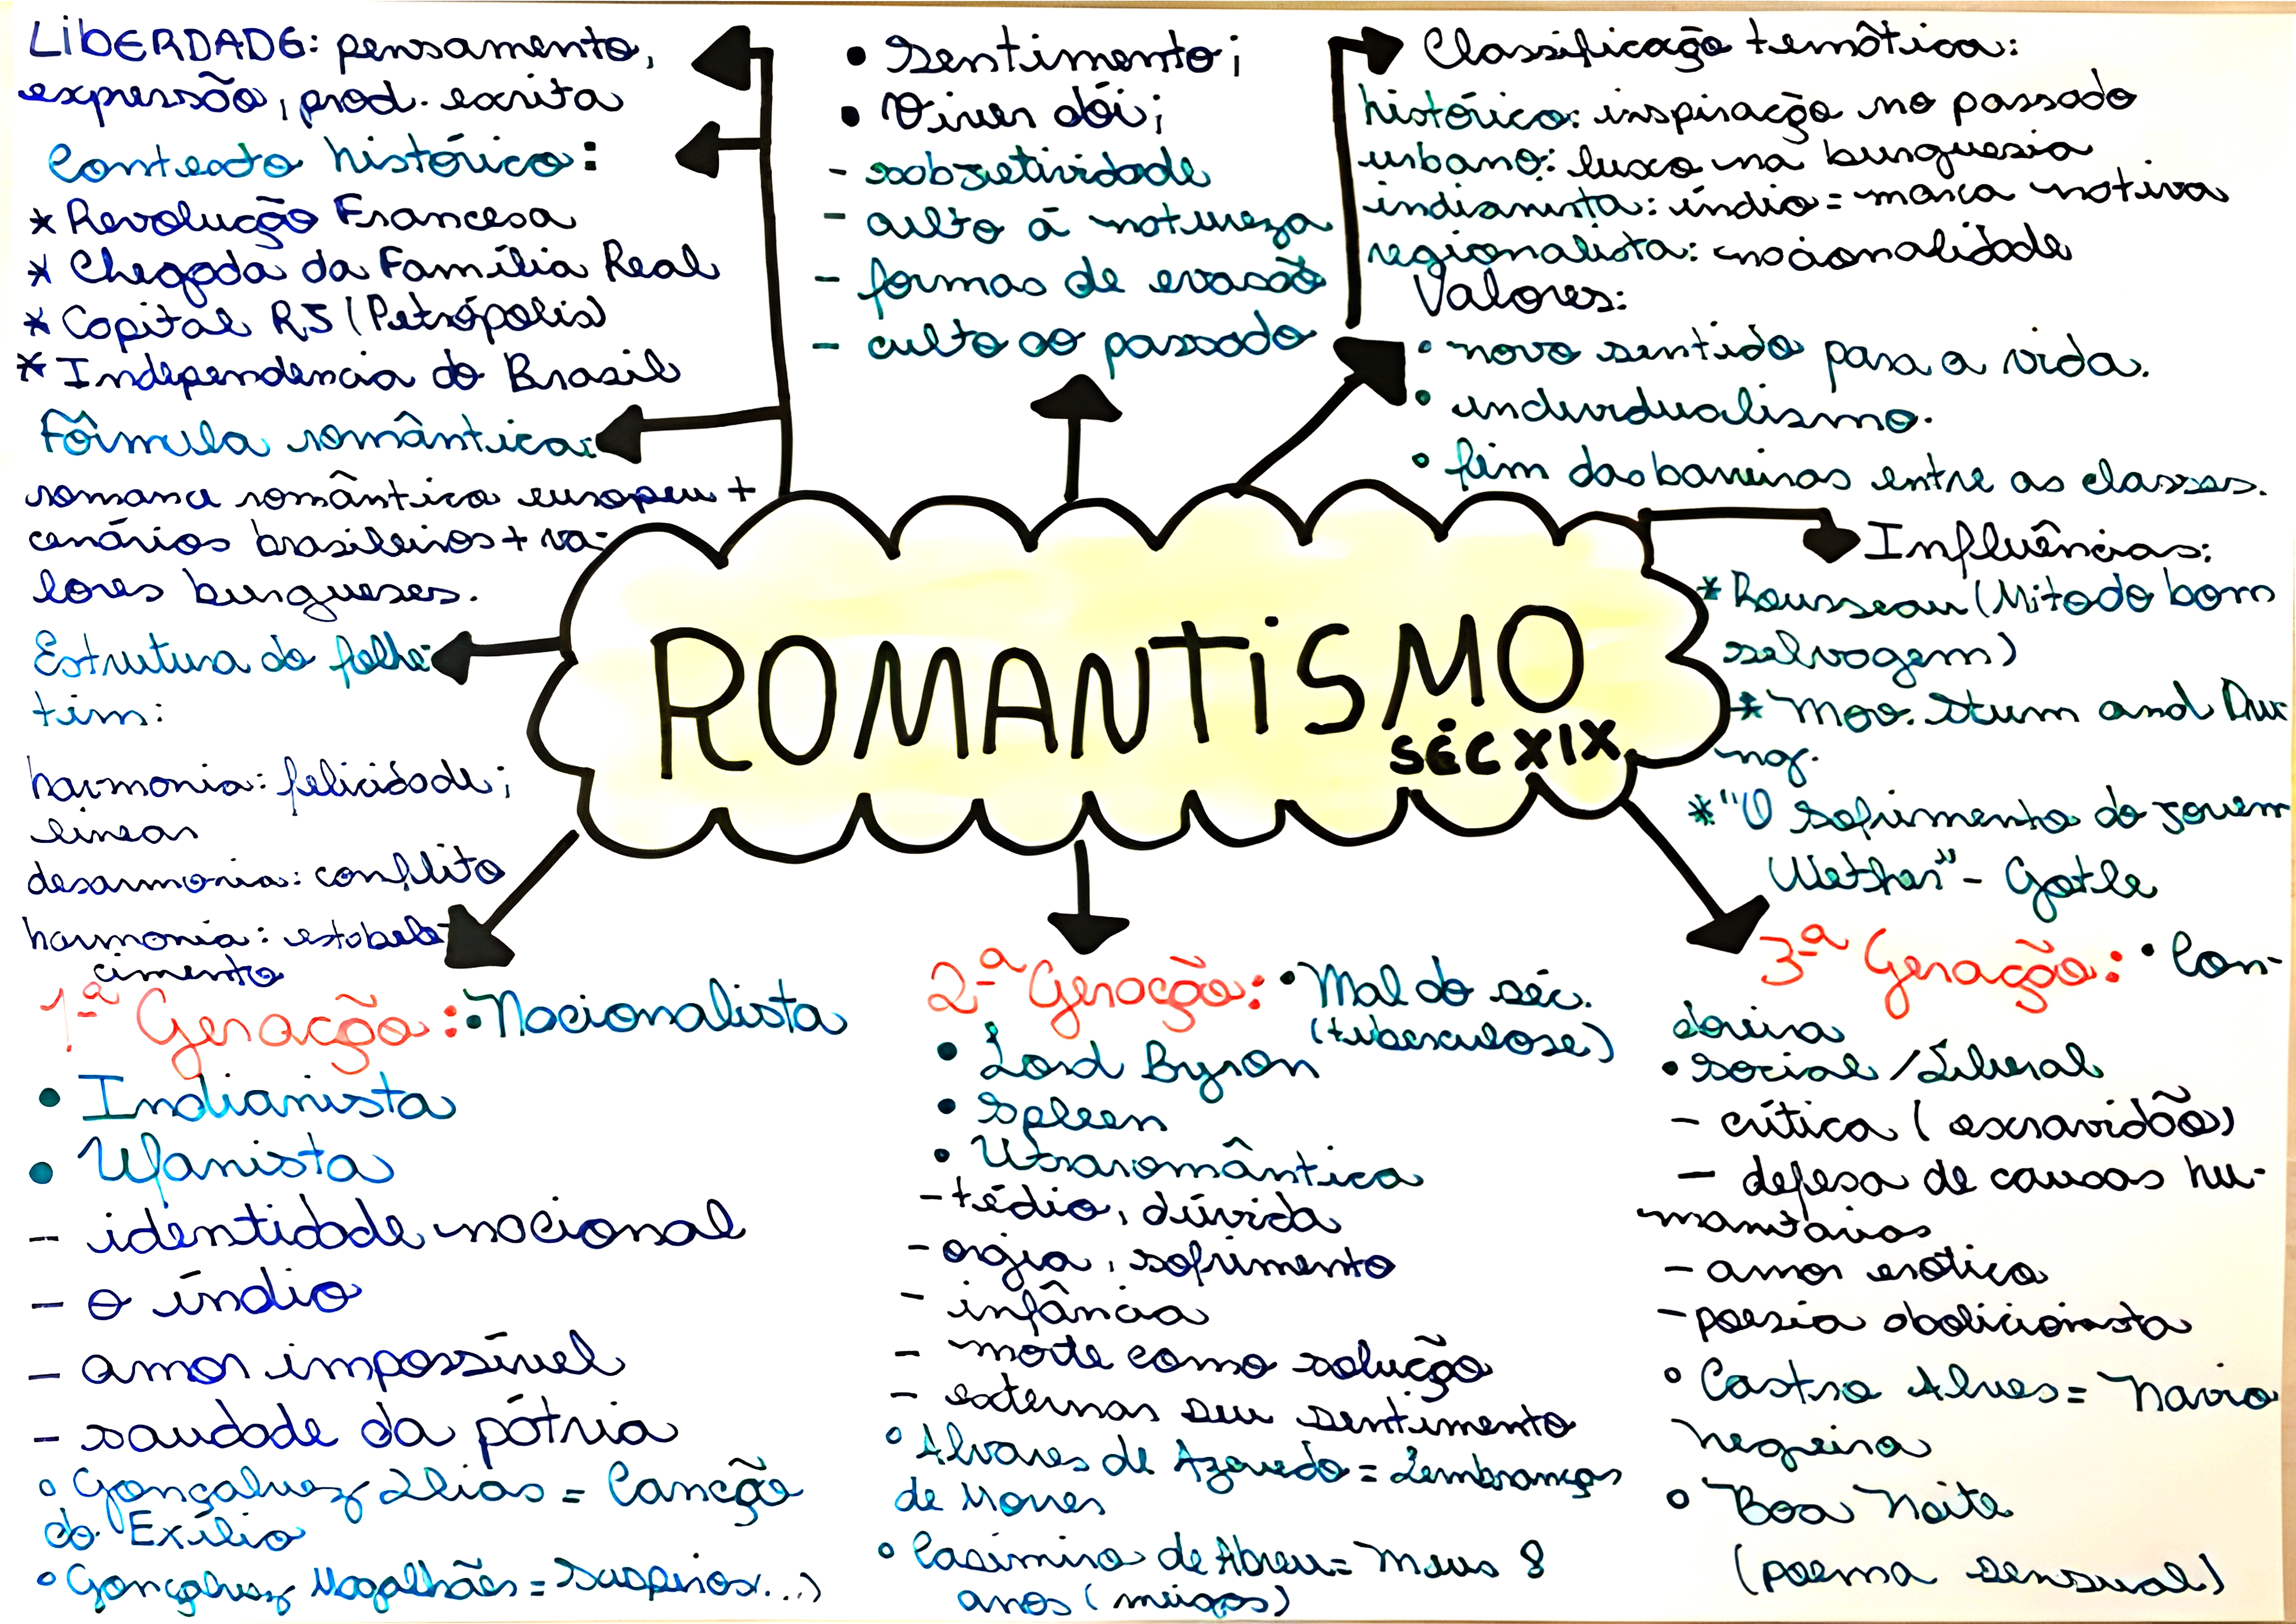 LIBERDADE: pensamento,
expressão, prod. escrita
Contexto histórico:
* Revolução Francesa
* Chegada da Família Real
* Capital RJ (Petrópolis)
* Independencia do Brasil
Fórmula romântica:
romance romântico europeu +
cenários brasileiros + va-
lores burgueses.
Estrutura do folhe-
tim:
harmonia: felicidade;
linear
desarmonia: conflito
harmonia: estabele-
cimento
• Sentimento;
• Viver dói;
- subjetividade
- culto à natureza
- formas de evasão
- culto ao passado
Classificação temática:
histórico: inspiração no passado
urbano: luxo na burguesia
indianista: índio = marca nativa
regionalista: nacionalidade
Valores:
• novo sentido para a vida.
• individualismo.
• fim das barreiras entre as classes.
Influências:
* Rousseau (Mito do bom
selvagem)
* Mov. Sturm and Dra
ng.
* "O sofrimento do jovem
Wether" - Gotle
ROMANTISMO
SÉC XIX
1ª Geração: • Nacionalista
• Indianista
• Ufanista
- identidade nacional
- o índio
- amor impossível
- saudade da pátria
• Gonçalvez Dias = Canção
do Exílio
• Gonçalvez Magalhães = Suspiros...)
2ª Geração: • Mal do séc.
(tuberculose)
• Lord Byron
• Spleen
• Utraromântica
- tédio, dúvida
- orgia, sofrimento
- infância
- morte como solução
- externar seu sentimento
• Alvares de Azevedo = Lembranças
de Morres
• Casimiro de Abreu = Meus 8
anos (meigos)
3ª Geração: • Con-
doreira
• Social / Liberal
- crítica (escravidão)
- defesa de causas hu-
manitárias
- amor erótico
- poesia abolicionista
• Castro Alves = Navio
Negreiro
• Boa Noite
(poema sensual)